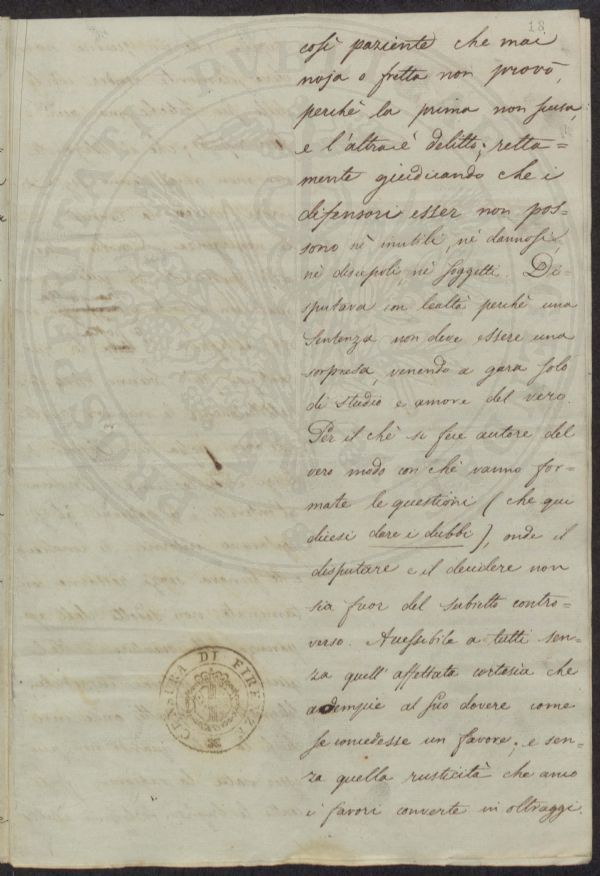 18
così paziente che mai
noja o fretta non provò,
perchè la prima non scusa,
e l'altra è delitto; retta=
mente giudicando che i
difensori esser non pos=
sono nè inutili, nè dannosi,
nè discepoli, nè soggetti. Di=
sputava con lealtà perchè una
sentenza non deve essere una
sorpresa, venendo a gara solo
di studio e amore del vero.
Per il chè si fece autore del
vero modo con chè vanno for=
mate le questioni (che qui
dicesi dare i dubbi), onde il
disputare e il decidere non
sia fuor del subietto contro=
verso. Accessibile a tutti sen=
za quell'affettata cortesia che
adempie al suo dovere come
se concedesse un favore; e sen=
za quella rusticità che anco
i favori converte in oltraggi.
CENSURA DI FIRENZE